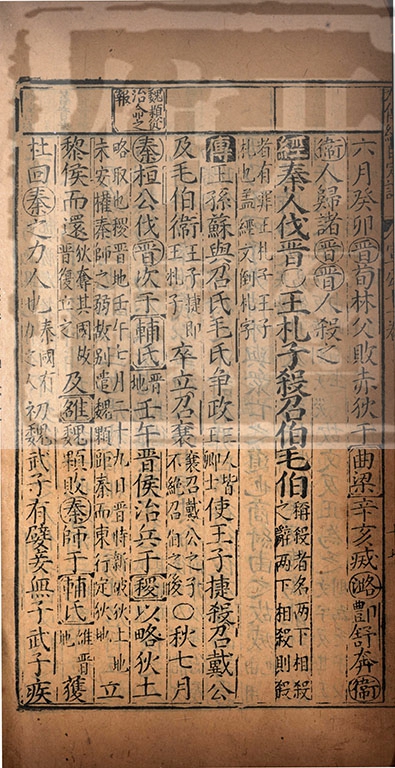 魏顆從
治命之
報
六月癸卯晉荀林父敗赤狄于曲梁辛亥滅潞酆舒奔衛
衛人歸諸晉晉人殺之
經秦人伐晉〇王札子殺召伯毛伯稱殺者名兩下相殺之辭兩下相殺則殺
者有罪王札子王子札也蓋經文倒札字
傳王孫蘇與召氏毛氏爭政三人皆王卿士使王子捷殺召戴公
及毛伯衛王子捷即王札子卒立召襄襄召戴公之子不絕召伯之後〇秋七月
秦桓公伐晉次于輔氏晉地壬午晉侯治兵于稷以略狄土
略取也稷晉地壬午七月二十九日晉時新破狄土地未安權秦師之弱故別遣魏顆師秦而東行定狄地立
黎侯而還狄奪其國故晉復立之及雒魏顆敗秦師于輔氏雒晉地獲
杜回秦之力人也秦國有力之人初魏武子有嬖妾無子武子疾